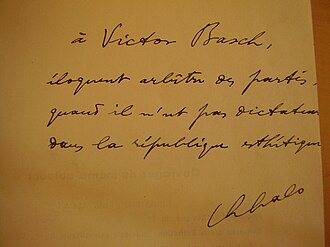 à Victor Basch,
éloquent arbitre des partis,
quand il n'est pas dictateur
dans la république esthétique
Ch Lalo